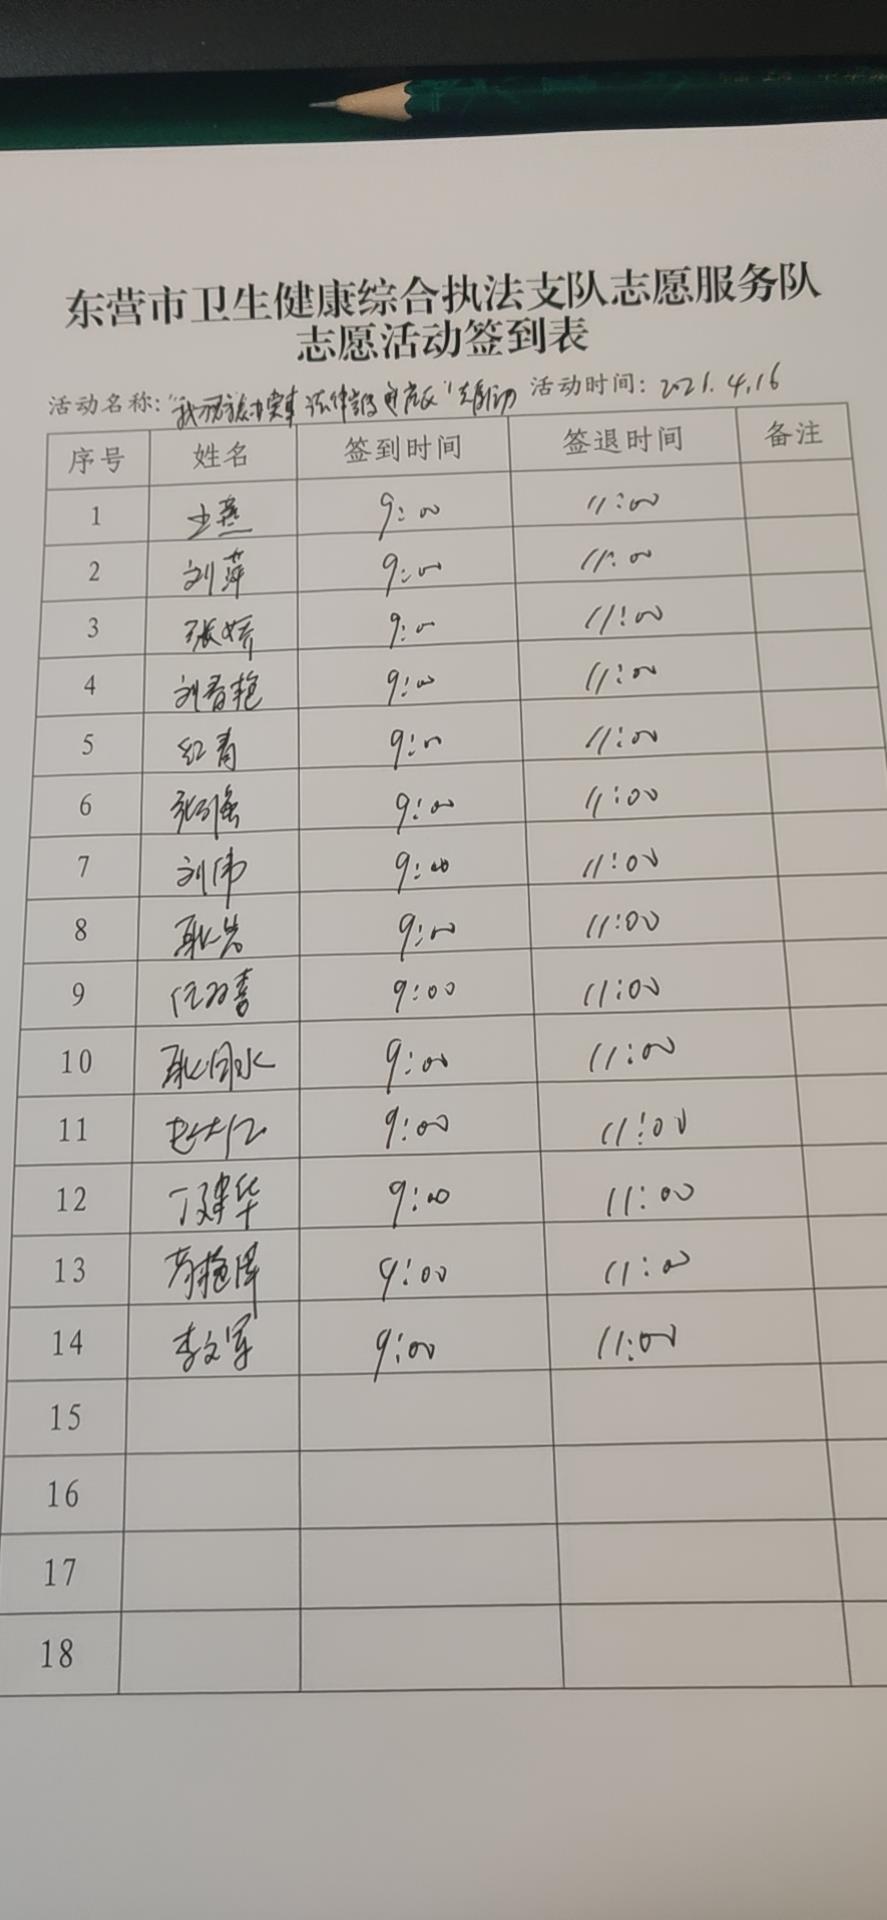 东营市卫生健康综合执法支队志愿服务队
志愿活动签到表
活动名称：“我为群众办实事 法律 进 ”活动 活动时间：2021.4.16
序号 姓名 签到时间 签退时间 备注
1 王燕 9:00 11:00
2 刘萍 9:00 11:00
3 张娇 9:00 11:00
4 刘春艳 9:00 11:00
5 红青 9:00 11:00
6 9:00 11:00
7 刘伟 9:00 11:00
8 耿岩 9:00 11:00
9 任双喜 9:00 11:00
10 耿国水 9:00 11:00
11 9:00 11:00
12 丁建华 9:00 11:00
13 9:00 11:00
14 李文军 9:00 11:00
15
16
17
18